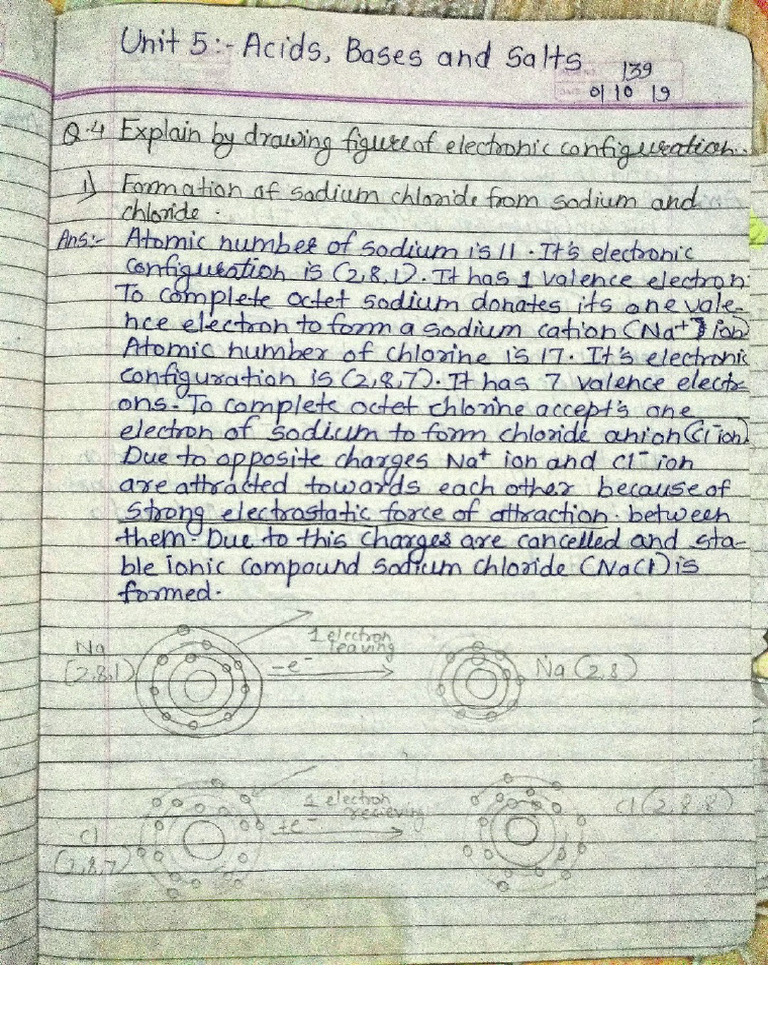 Unit 5:- Acids, Bases and Salts
139
01 10 19
Q.4 Explain by drawing figure of electronic configuration.
i) Formation of sodium chloride from sodium and
chloride.
Ans:- Atomic number of sodium is 11. It's electronic
configuration is (2,8,1). It has 1 valence electron.
To complete octet sodium donates its one vale-
nce electron to form a sodium cation (Na+ ion)
Atomic number of chlorine is 17. It's electronic
configuration is (2,8,7). It has 7 valence electr-
ons. To complete octet chlorine accept's one
electron of sodium to form chloride anion (Cl⁻ ion)
Due to opposite charges Na⁺ ion and Cl⁻ ion
are attracted towards each other because of
strong electrostatic force of attraction. between
them. Due to this Charges are cancelled and sta-
ble ionic compound sodium chloride (NaCl) is
formed.
Na
(2,8,1)
1 electron
leaving
-e⁻
Na (2,8)
Cl
(2,8,7)
1 electron
recieving
+e⁻
Cl (2,8,8)